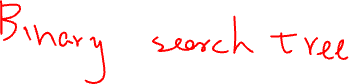 Binary search tree